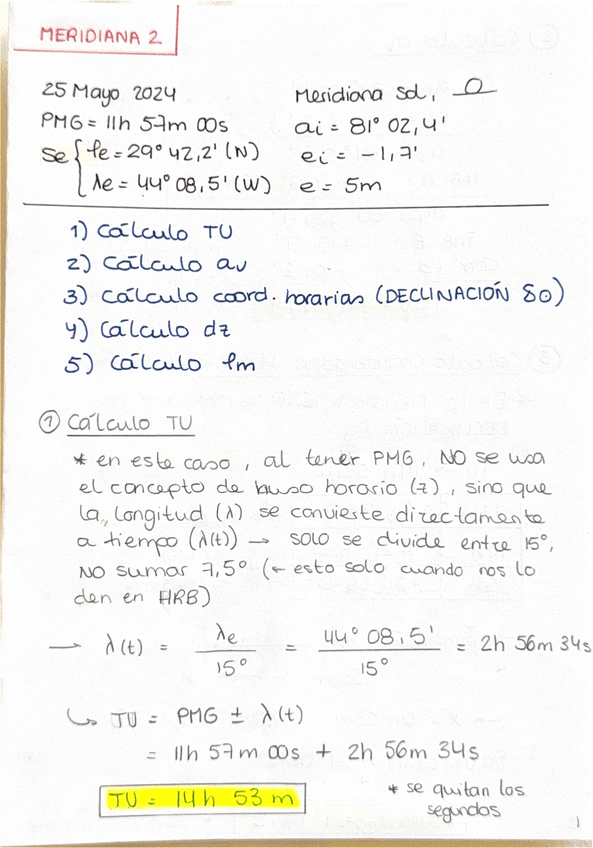 MERIDIANA 2
25 Mayo 2024 Meridiana Sol, O
PMG = 11h 57m 00s ai = 81° 02,4'
Se { le = 29° 42,2' (N) ei = -1,7'
λe = 44° 08,5' (W) e = 5m
1) Cálculo TU
2) Cálculo av
3) Cálculo coord. horarias (DECLINACIÓN δ⊙)
4) Cálculo dz
5) Cálculo lm
① Cálculo TU
* en este caso, al tener PMG, NO se usa
el concepto de huso horario (z), sino que
la longitud (λ) se convierte directamente
a tiempo (λ(t)) → SOLO se divide entre 15°,
NO sumar 7,5° (← esto solo cuando nos lo
den en HRB)
→ λ(t) = λe / 15° = 44° 08,5' / 15° = 2h 56m 34s
↳ TU = PMG ± λ(t)
= 11h 57m 00s + 2h 56m 34s
TU = 14h 53m * se quitan los
segundos
1